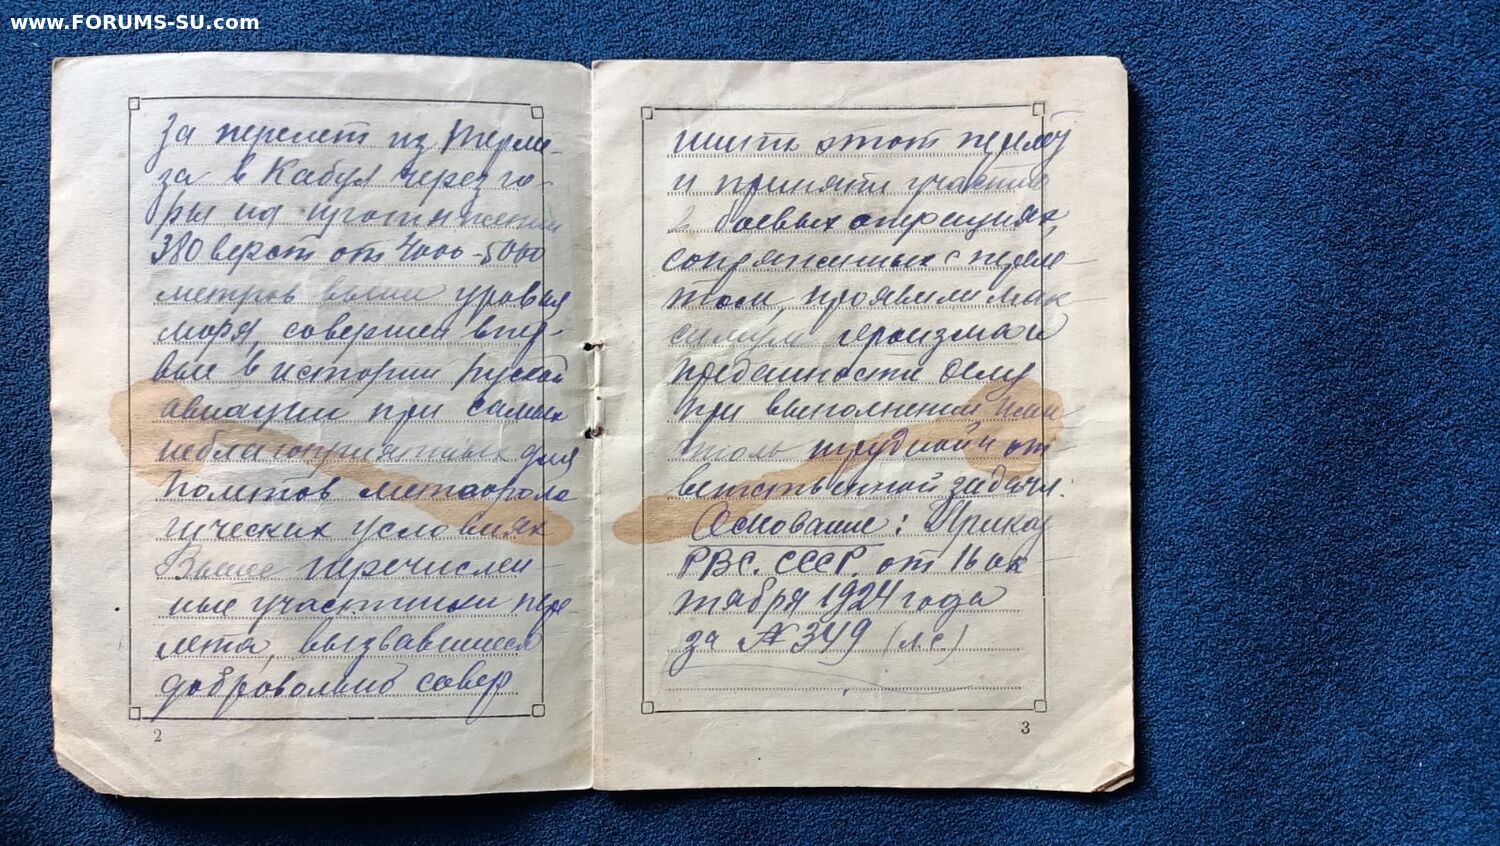 www.FORUMS-SU.com
За перелет из Терме-
за в Кабул через го-
ры на протяжении
380 верст от 4000-5000
метров выше уровня
моря, совершен впер-
вые в истории руской
авиации при самых
неблагоприятных для
полетов метеороло
гических условиях
Выше перечислен-
ные участники пере-
лета, вызвавшиеся
добровольно совер
2
шить этот перелет
и принять участие
в боевых операциях,
сопряженных с переле-
том, проявили мак-
симум героизма и
преданности делу
при выполнении ими
столь трудной и от-
ветственной задачи.
Основание: Приказ
РВС. СССР. от 16 ок-
тября 1924 года
за № 349 (л.с.)
3